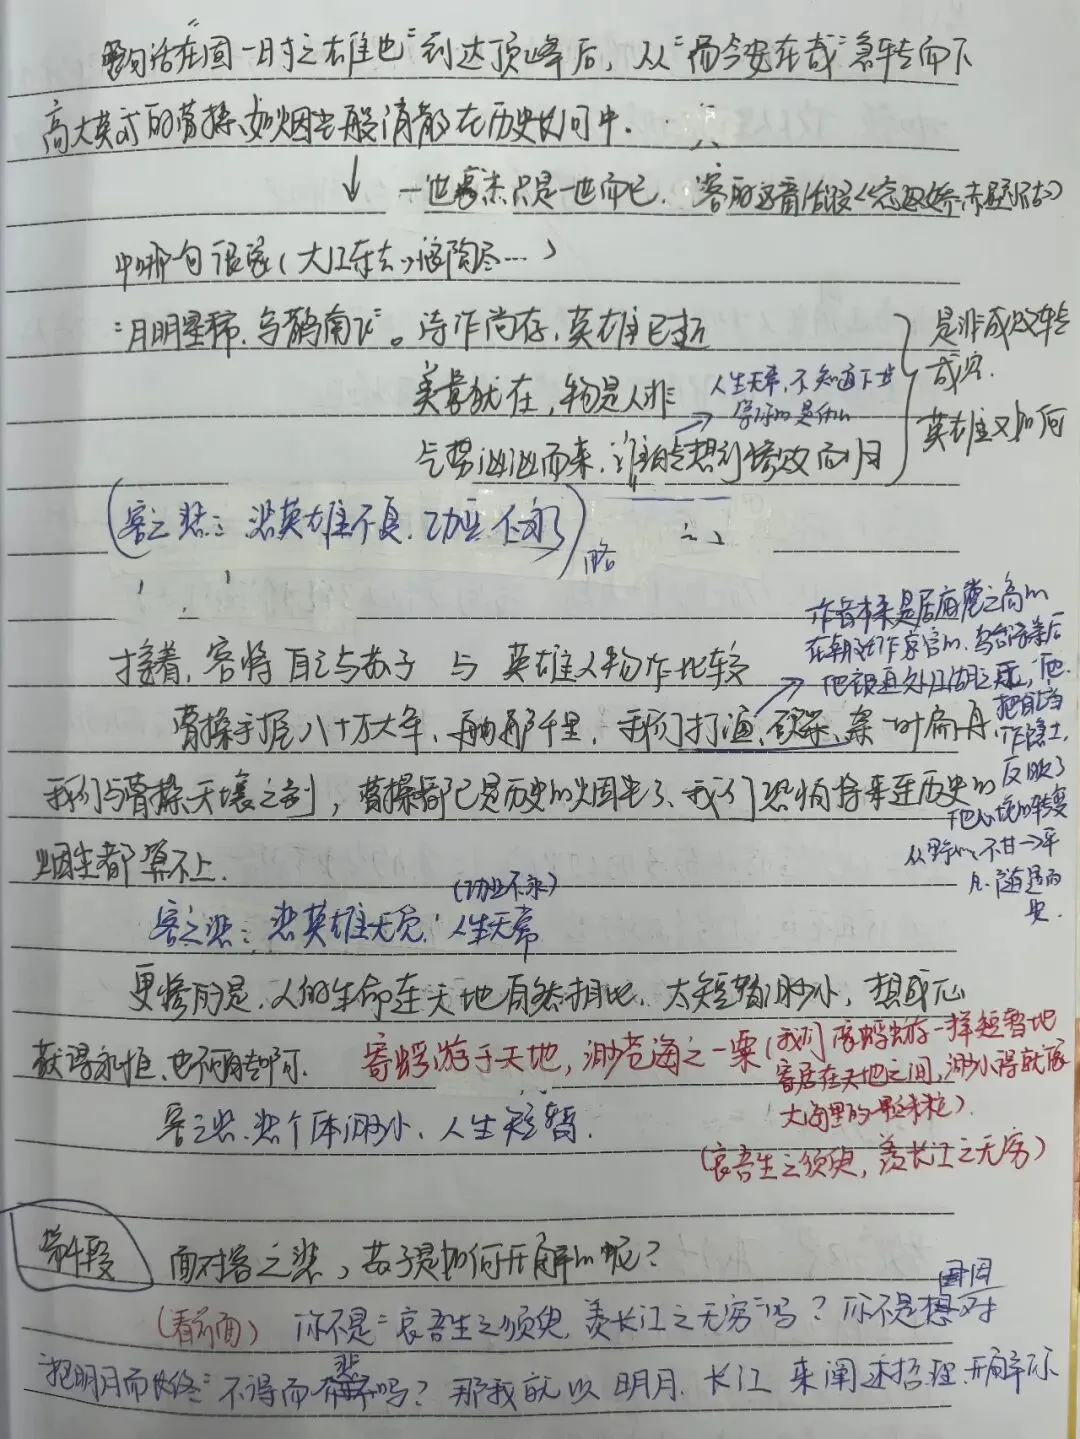 这句话在"固一时之雄也"到达顶峰后，从"而今安在哉"急转而下
高大英武的曹操、如烟尘般消散在历史长河中.
↓ 一世豪杰只是一世而已. 客的这番话跟<念奴娇·赤壁怀古>
中哪句很像(大江东去,浪淘尽…)
"月明星稀.乌鹊南飞"。诗作尚存,英雄已逝
美景犹在,物是人非
气势汹汹而来,谁能想到惨败而归
人生无常,不知道下步
等你的是什么
是非成败转
成空.
英雄又如何
(客之悲：悲英雄不复.功业不永) 略
接着,客将自己与苏子 与 英雄人物作比较
曹操手握八十万大军、舳舻千里,我们打渔、砍柴、一叶扁舟.
我们与曹操天壤之别，曹操都已是历史的烟尘了、我们恐怕将来连历史的
烟尘都算不上.
作者本来是居庙堂之高的
在朝廷作京官的.乌台诗案后
他被迫处江湖之远,他
把自己当
作隐士,
反映了
他心境的转变
从 不甘→平
凡.随遇而
安.
客之悲：悲英雄无觅.人生无常
(功业不永)
更惨的是.人的生命在天地自然相比、太短暂渺小,想
获得永恒.也不可能啊.
寄蜉蝣于天地,渺沧海之一粟(我们像蜉蝣一样短暂地
寄居在天地之间,渺小得就像
大海里的一颗米粒).
客之悲.悲个体渺小、人生短暂.
(哀吾生之须臾,羡长江之无穷)
第4段 面对客之悲,苏子是如何开解的呢？
(看前面) 你不是"哀吾生之须臾,羡长江之无穷"吗？你不是想
因
"抱明月而长终"不得而悲吗？那我就以明月、长江来阐述哲理.开解你